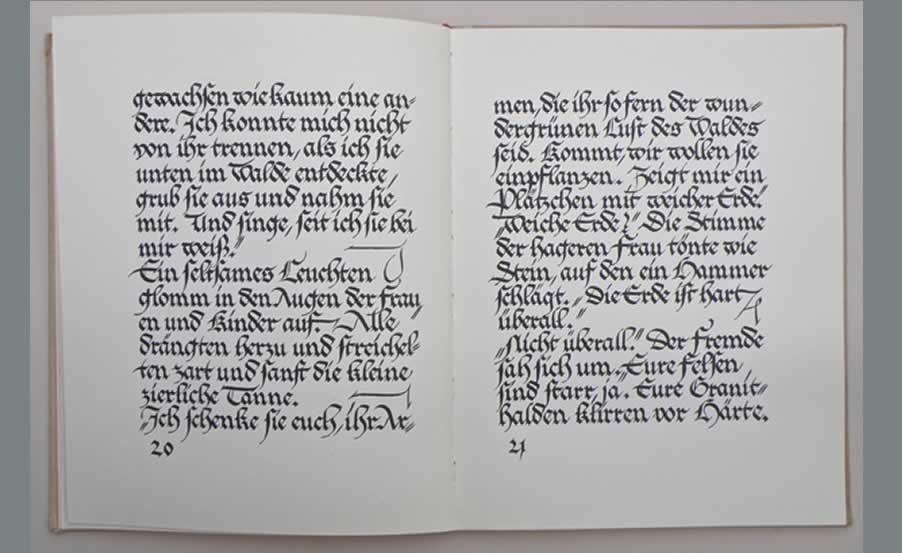 gewachsen wie kaum eine an=
dere. Ich konnte mich nicht
von ihr trennen, als ich sie
unten im Walde entdeckte,
grub sie aus und nahm sie
mit. Und singe, seit ich sie bei
mir weiß."
Ein seltsames Leuchten
glomm in den Augen der Frau
en und Kinder auf. – Alle
drängten herzu und streichel=
ten zart und sanft die kleine
zierliche Tanne.
„Ich schenke sie euch, ihr Ar=
20
men, die ihr so fern der wun=
dergrünen Lust des Waldes
seid. Kommt, wir wollen sie
einpflanzen. Zeigt mir ein
Plätzchen mit weicher Erde."
„Weiche Erde?" Die Stimme
der hageren Frau tönte wie
Stein, auf den ein Hammer
schlägt. „Die Erde ist hart
überall."
„Nicht überall." Der Fremde
sah sich um. „Eure Felsen
sind starr, ja. Eure Granit=
halden klirren vor Härte.
21